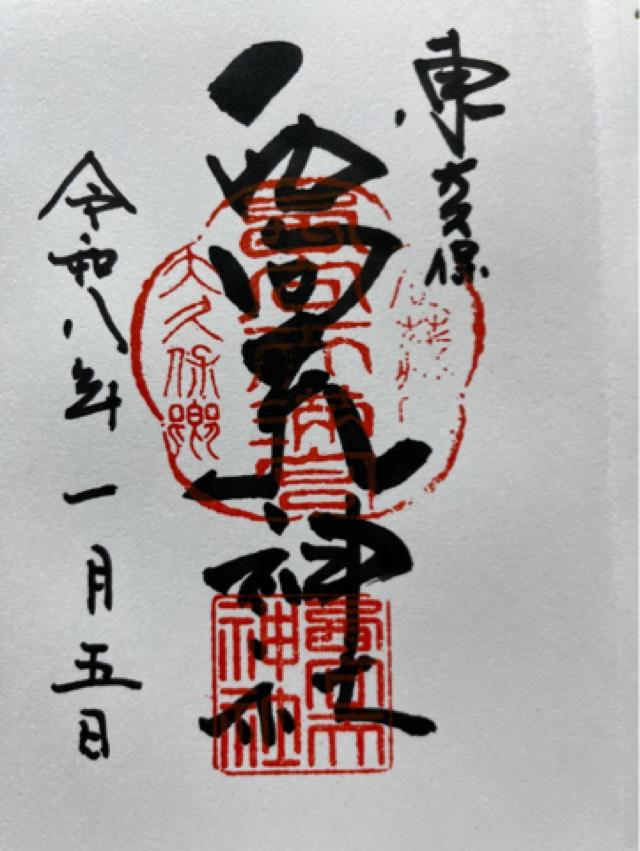 東大久保
西向天神社
令和八年一月五日
大久保郷
西向天
神社